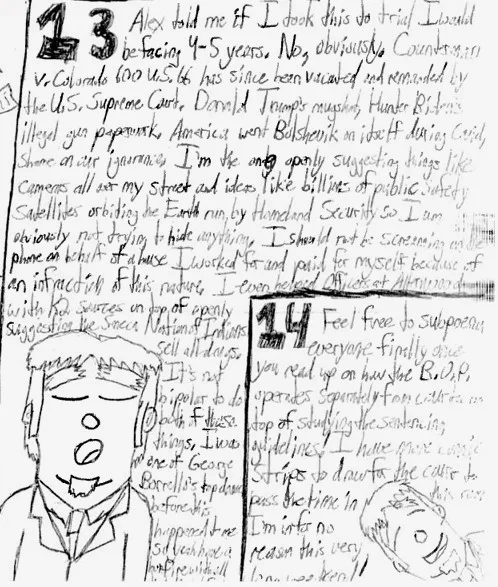 13 Alex told me if I took this to trial I would
be facing 4-5 years. No, obviously. Counterman
v. Colorado 600 U.S. 66 has since been vacated and remanded by
the U.S. Supreme Court. Donald Trump's mugshot, Hunter Biden's
illegal gun paperwork. America went Bolshevik on itself during Covid,
shame on our ignorance. I'm the one openly suggesting things like
cameras all over my street and ideas like billions of public safety
satellites orbiting the Earth run by Homeland Security so I am
obviously not trying to hide anything. I should not be screaming on the
phone on behalf of abuse I worked for and paid for myself because of
an infraction of this nature. I even helped Officers at
with K2 sources on top of openly
suggesting the Seneca Nation of Indians
sell all drugs.
It's not
bipolar to do
both of these
things. I was
one of George
Borrello's top
before this
happened to me
so yeah have a
14 Feel free to subpoena
everyone finally once
you read up on how the B.O.P.
operates separately from courts on
top of studying the sentencing
guidelines! I have more comic
strips to draw for the court to
pass the time in this
I'm into no
reason this very